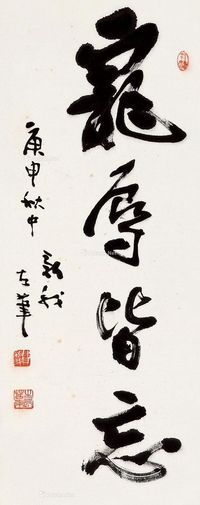 寵辱皆忘
庚申秋中
毅我
左筆